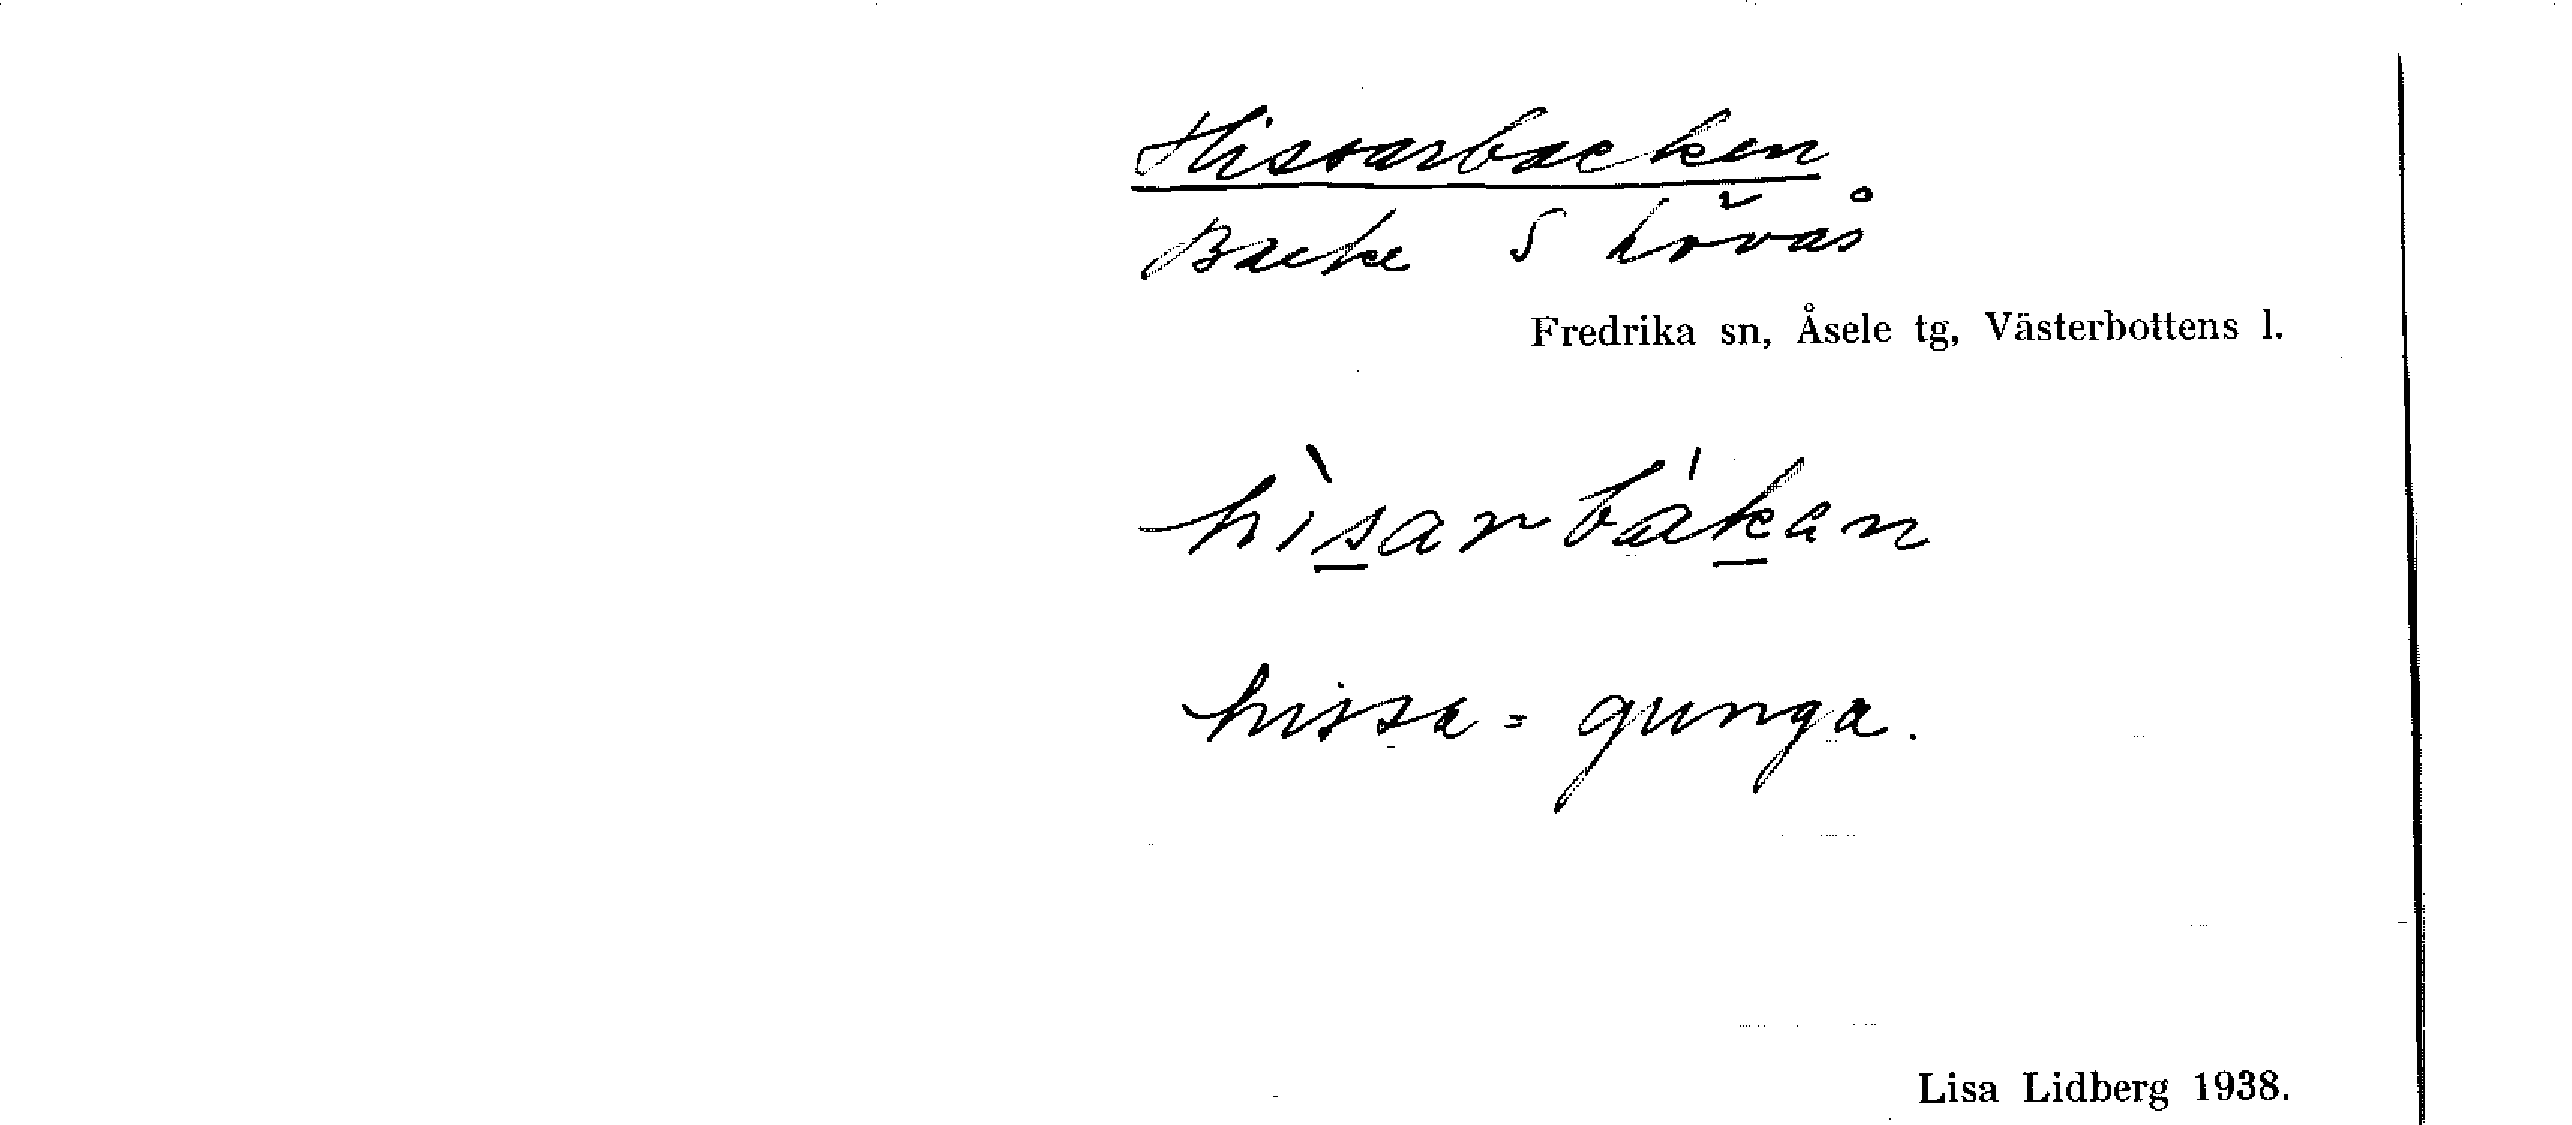 Hissarbacken
Backe S Lövås
Fredrika sn, Åsele tg, Västerbottens l.
hìsarbákan
hissa = gunga.
Lisa Lidberg 1938.